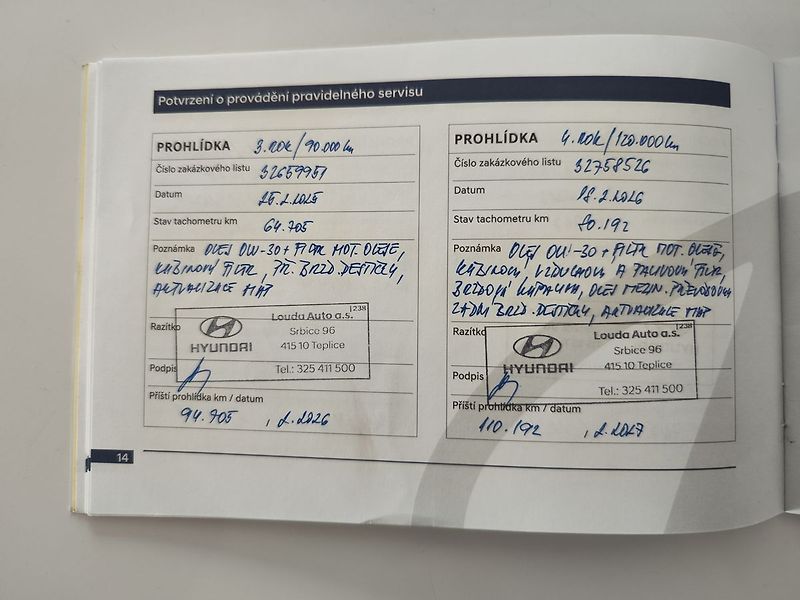 Potvrzení o provádění pravidelného servisu
PROHLÍDKA 3. ROK/90.000 km
Číslo zakázkového listu 32659951
Datum 25.2.2025
Stav tachometru km 64.705
Poznámka OLEJ 0W-30 + FILTR MOT. OLEJE,
KABINOVÝ FILTR, PŘ. BRZD. DESTIČKY,
AKTUALIZACE MAP
Razítko
238
Louda Auto a.s.
Srbice 96
HYUNDAI
415 10 Teplice
Podpis
Tel.: 325 411 500
Příští prohlídka km / datum
94.705, 2.2026
PROHLÍDKA 4. ROK/120.000 km
Číslo zakázkového listu 32758526
Datum 18.2.2026
Stav tachometru km 80.192
Poznámka OLEJ 0W-30 + FILTR MOT. OLEJE,
KABINOVÝ, VZDUCHOVÝ A PALIVOVÝ FILTR,
BRZDOVÁ KAPALINA, OLEJ MEZIN. PŘEVODOVKY
ZADNÍ BRZD. DESTIČKY, AKTUALIZACE MAP
Razítko
238
Louda Auto a.s.
Srbice 96
HYUNDAI
415 10 Teplice
Podpis
Tel.: 325 411 500
Příští prohlídka km / datum
110.192, 2.2027
14